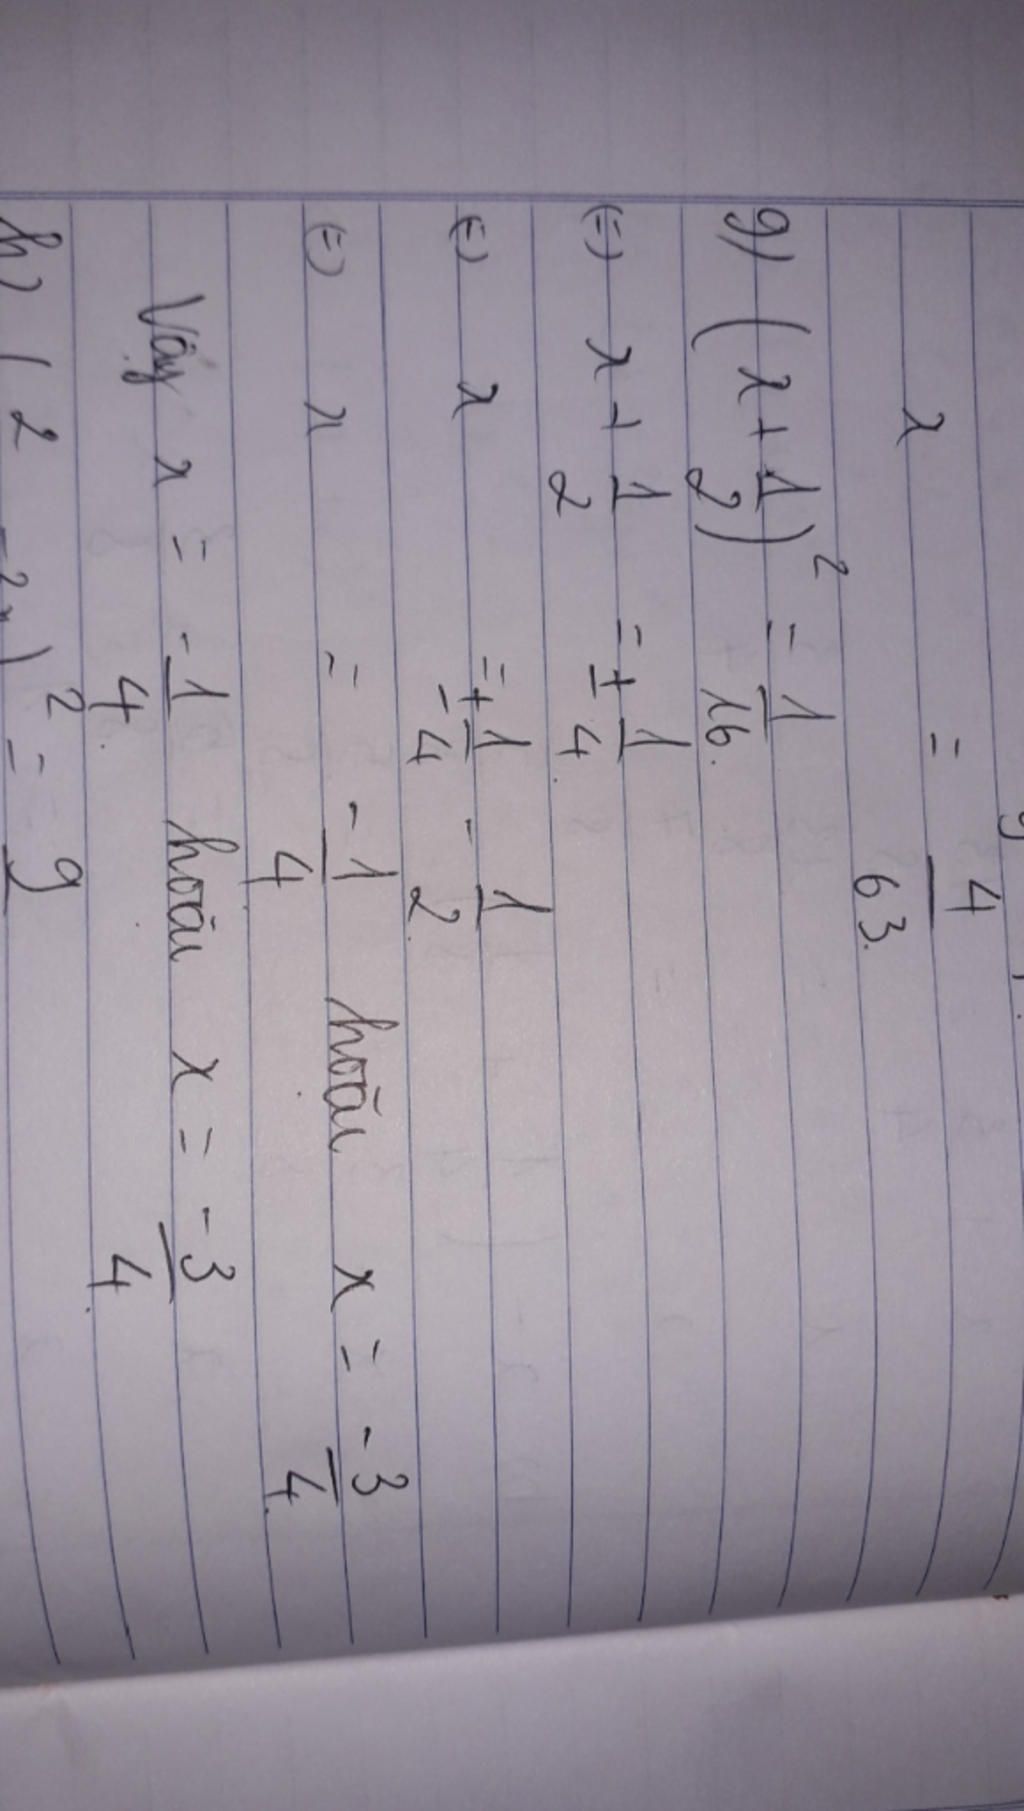 x = 4/63.
g) (x + 1/2)² = 1/16.
(=) x + 1/2 = ± 1/4.
(=) x = ± 1/4 - 1/2.
(=) x = -1/4 hoặc x = -3/4.
Vậy x = -1/4. hoặc x = -3/4.